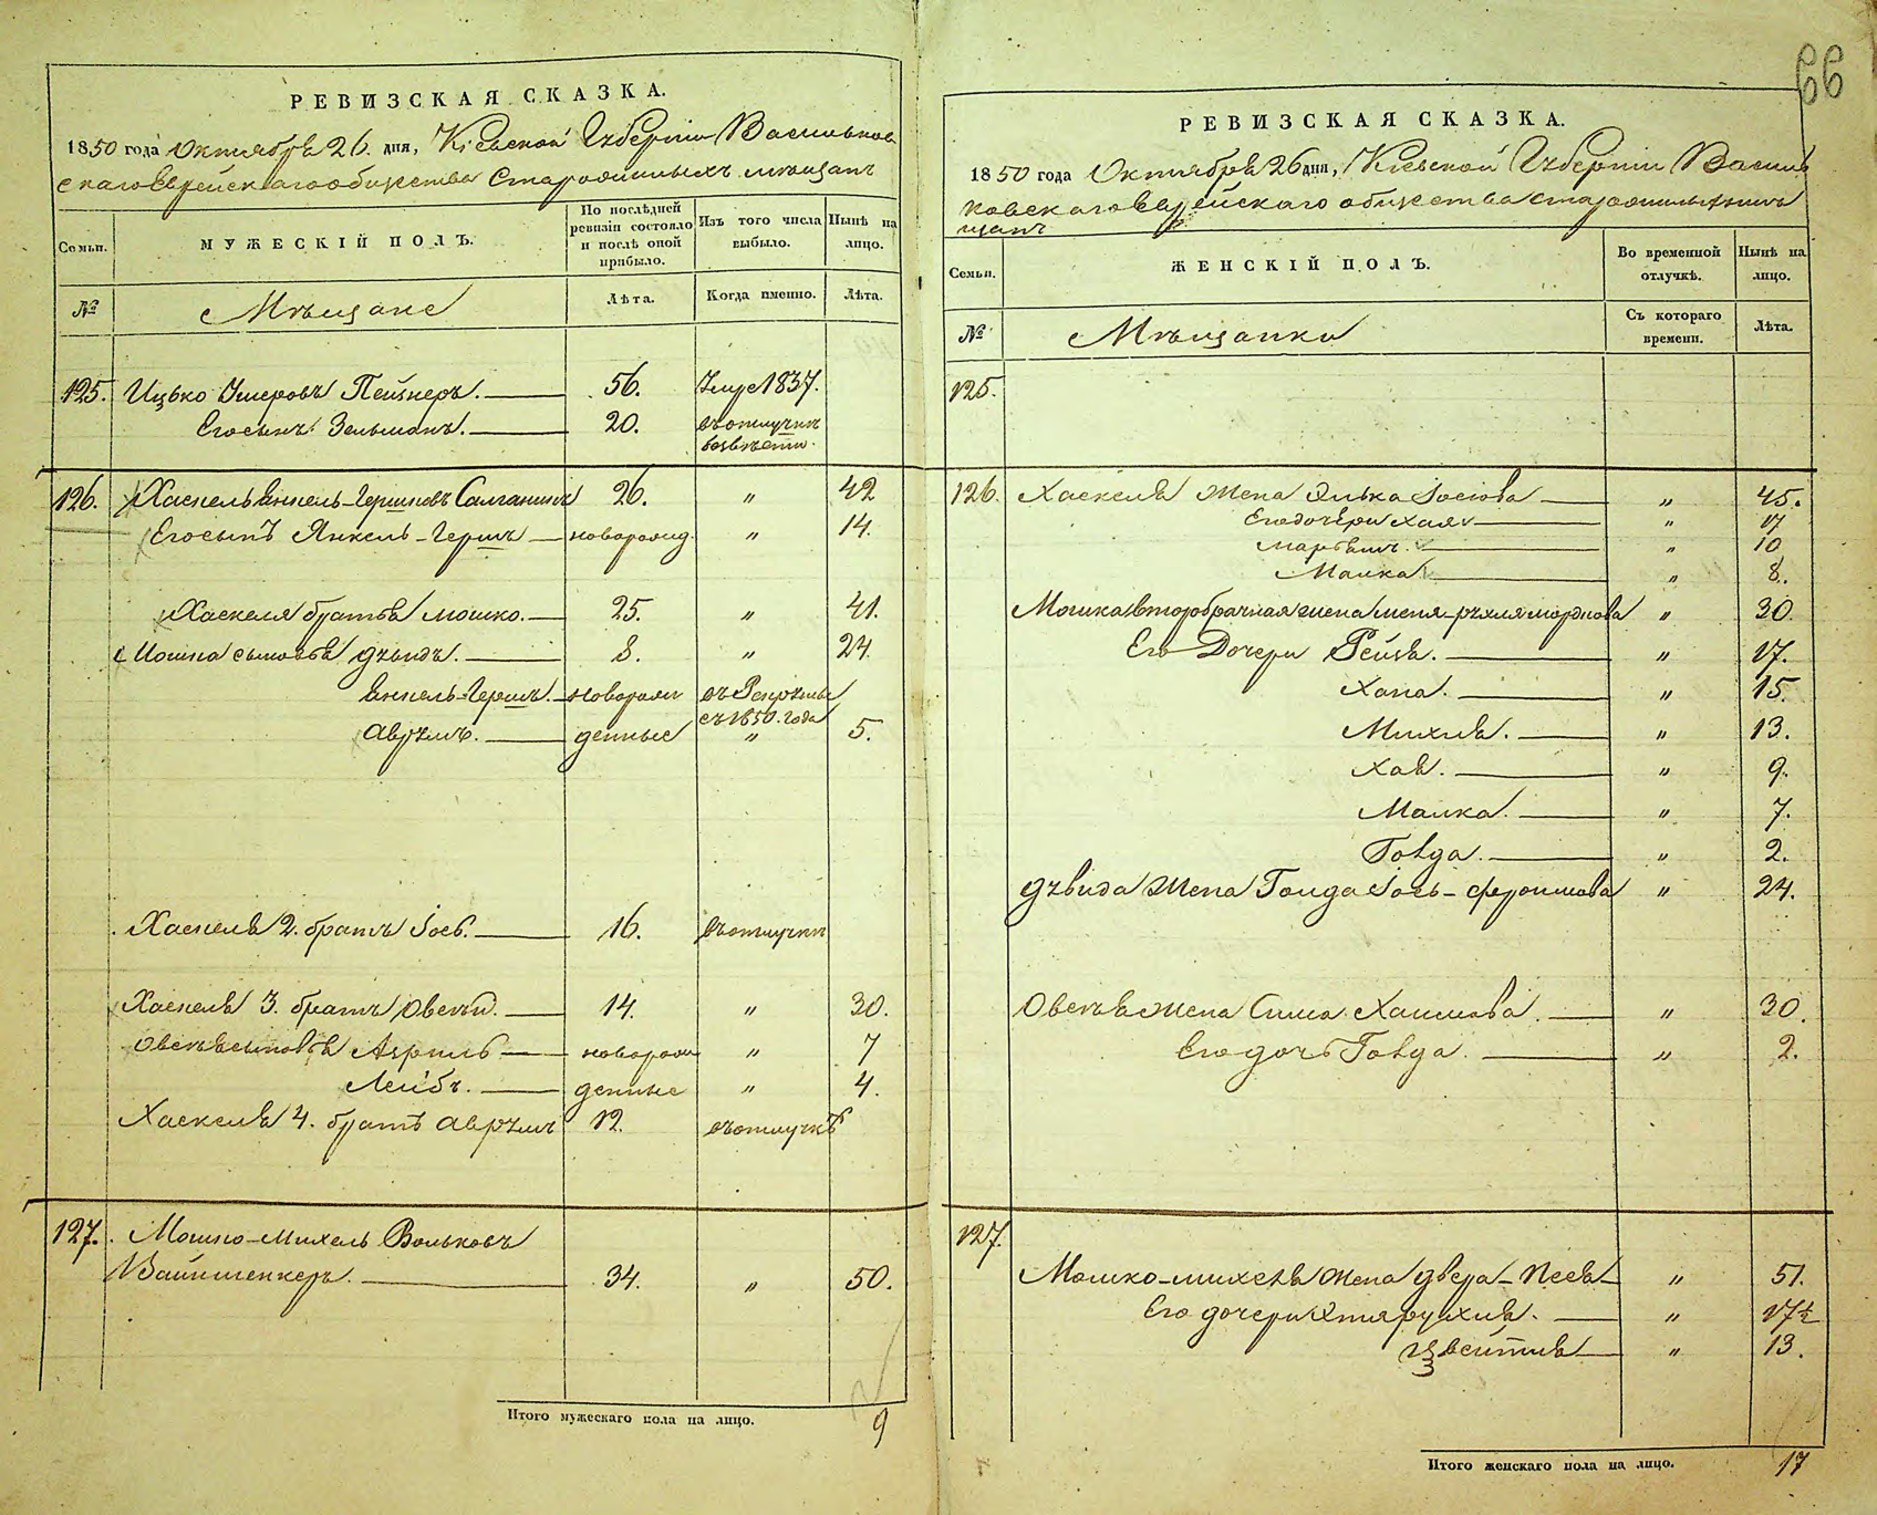 66
РЕВИЗСКАЯ СКАЗКА.
1850 года Октября 26. дня, Кіевской Губерніи Васильков
скаго Еврейскаго общества Старожилыхъ мѣщанъ
Семьи.
МУЖЕСКІЙ ПОЛЪ.
По послѣдней ревизіи состояло и послѣ оной прибыло.
Изъ того числа выбыло.
Нынѣ на лицо.
№
Мѣщане
Лѣта.
Когда именно.
Лѣта.
125. Ицько Умеровъ Пейзнеръ. 56. Умре 1837.
Его сынъ Зельманъ. 20. въ отлучкѣ
безвѣстн.
126. Хаскель Янкель-Гершковъ 26. " 42
Его сынъ Янкель-Гершъ новорожд. " 14.
Хаскеля братъ Мошко. 25. " 41.
Мошка сыновья Дъвидъ. 8. " 24.
Янкель-Гершъ. новорож въ Рекруты
съ 1850. года
Авръмъ. денные " 5.
Хаскеля 2. братъ Іось. 16. въ отлучкѣ
Хаскеля 3. братъ Овсѣй. 14. " 30.
Овсѣя сыновья новорож " 7
Лейбъ. денные " 4.
Хаскеля 4. братъ Авръмъ 12. въ отлучкѣ
127. Мошко-Михель Вольковъ
Вайншенкеръ. 34. " 50.
Итого мужескаго пола на лицо. 9
РЕВИЗСКАЯ СКАЗКА.
1850 года Октября 26 дня, Кіевской Губерніи Василь
ковскаго Еврейскаго общества Старожилыхъ мѣ
щанъ
Семьи.
ЖЕНСКІЙ ПОЛЪ.
Во временной отлучкѣ.
Нынѣ на лицо.
№
Мѣщанки
Съ котораго времени.
Лѣта.
125.
126. Хаскеля жена Элька Іосіова " 45.
Его дочери Хая " 17
Маріямъ. " 10
Малка " 8.
Мошка второбрачная жена Меня-Рухля Мордкова " 30.
Его Дочери Рейзя. " 17.
Хана. " 15.
Михля. " 13.
Хая. " 9.
Малка. " 7.
Говда. " 2.
Дъвида жена Голда Іось-Фроимова " 24.
Овсѣя жена Сима Хаимова. " 30.
Его дочь Говда. " 2.
127.
Мошко-Михеля жена Двера-Песя " 51.
Его дочери " 17½
Цвейтля " 13.
Итого женскаго пола на лицо. 17